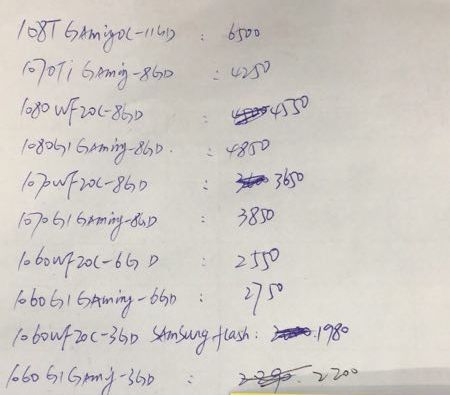 108T GAmingOC-11GD : 6500
1070Ti GAming-8GD : 4250
1080WF2OC-8GD : 4550
1080G1 GAming-8GD : 4850
1070WF2OC-8GD : 3650
1070G1 GAming-8GD : 3850
1060WF2OC-6GD : 2550
1060G1 GAming-6GD : 2750
1060WF2OC-3GD SAmSung flash: 1980
1060G1 GAming-3GD : 2200